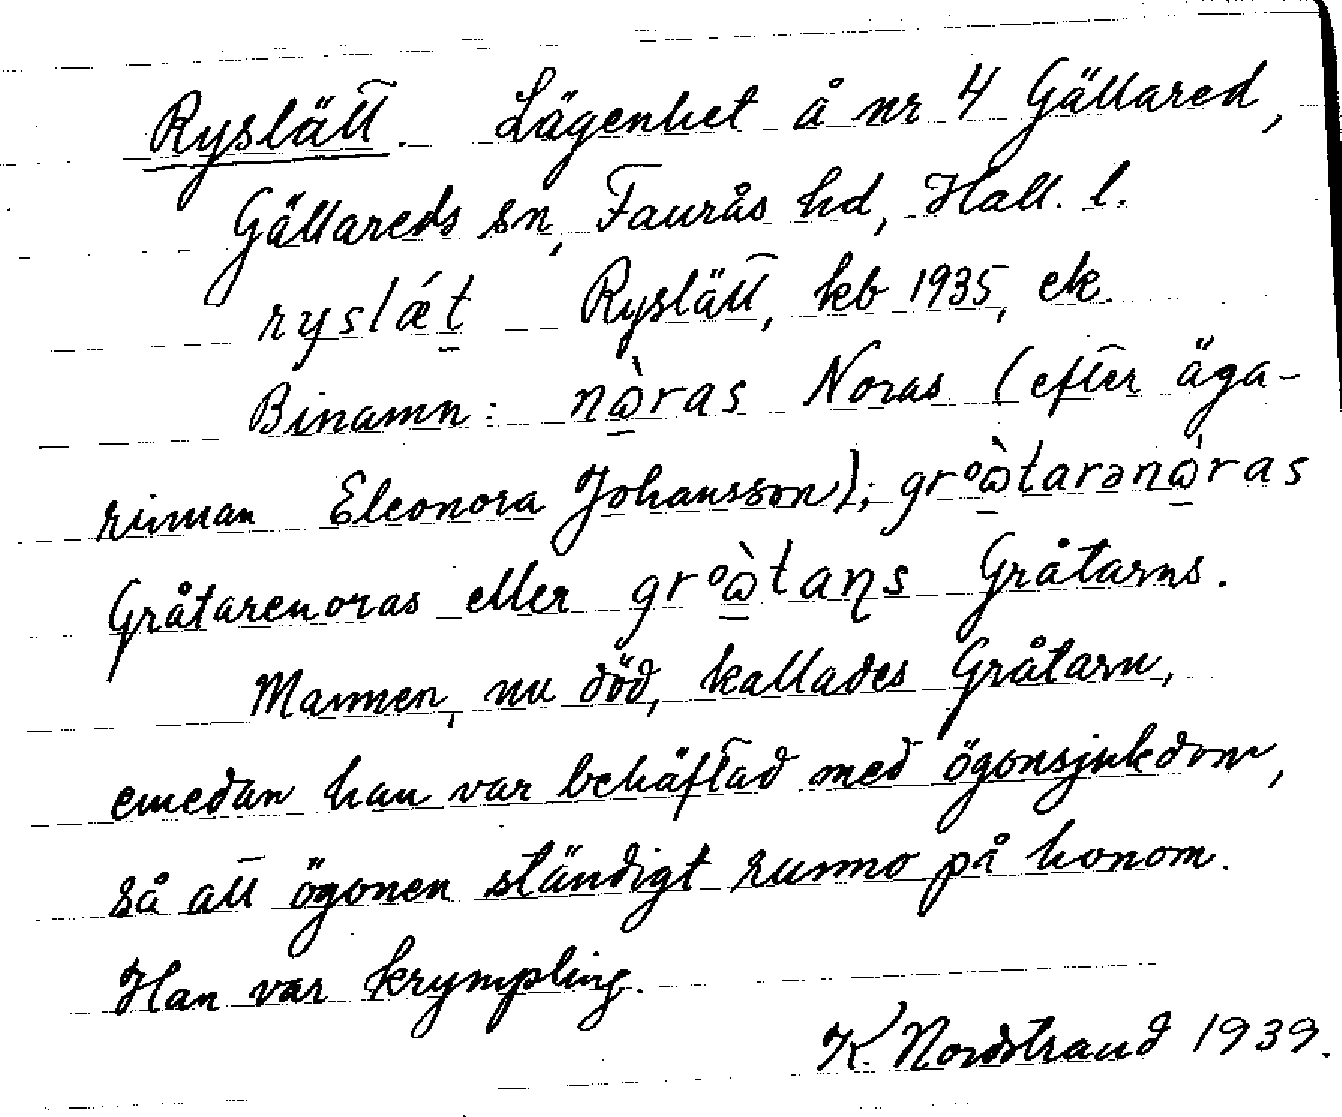 Ryslätt. Lägenhet å nr 4 Gällared,
Gällareds sn, Faurås hd, Hall. l.
ryslǽt Ryslätt, kb 1935, ek.
Binamn: nὼras Noras (efter äga-
rinnan Eleonora Johansson); grºὼtarənὼras
Gråtarenoras eller grºὼtaņs Gråtarns.
Mannen, nu död, kallades Gråtarn,
emedan han var behäftad med ögonsjukdom,
så att ögonen ständigt runno på honom.
Han var krympling.
K. Nordstrand 1939.